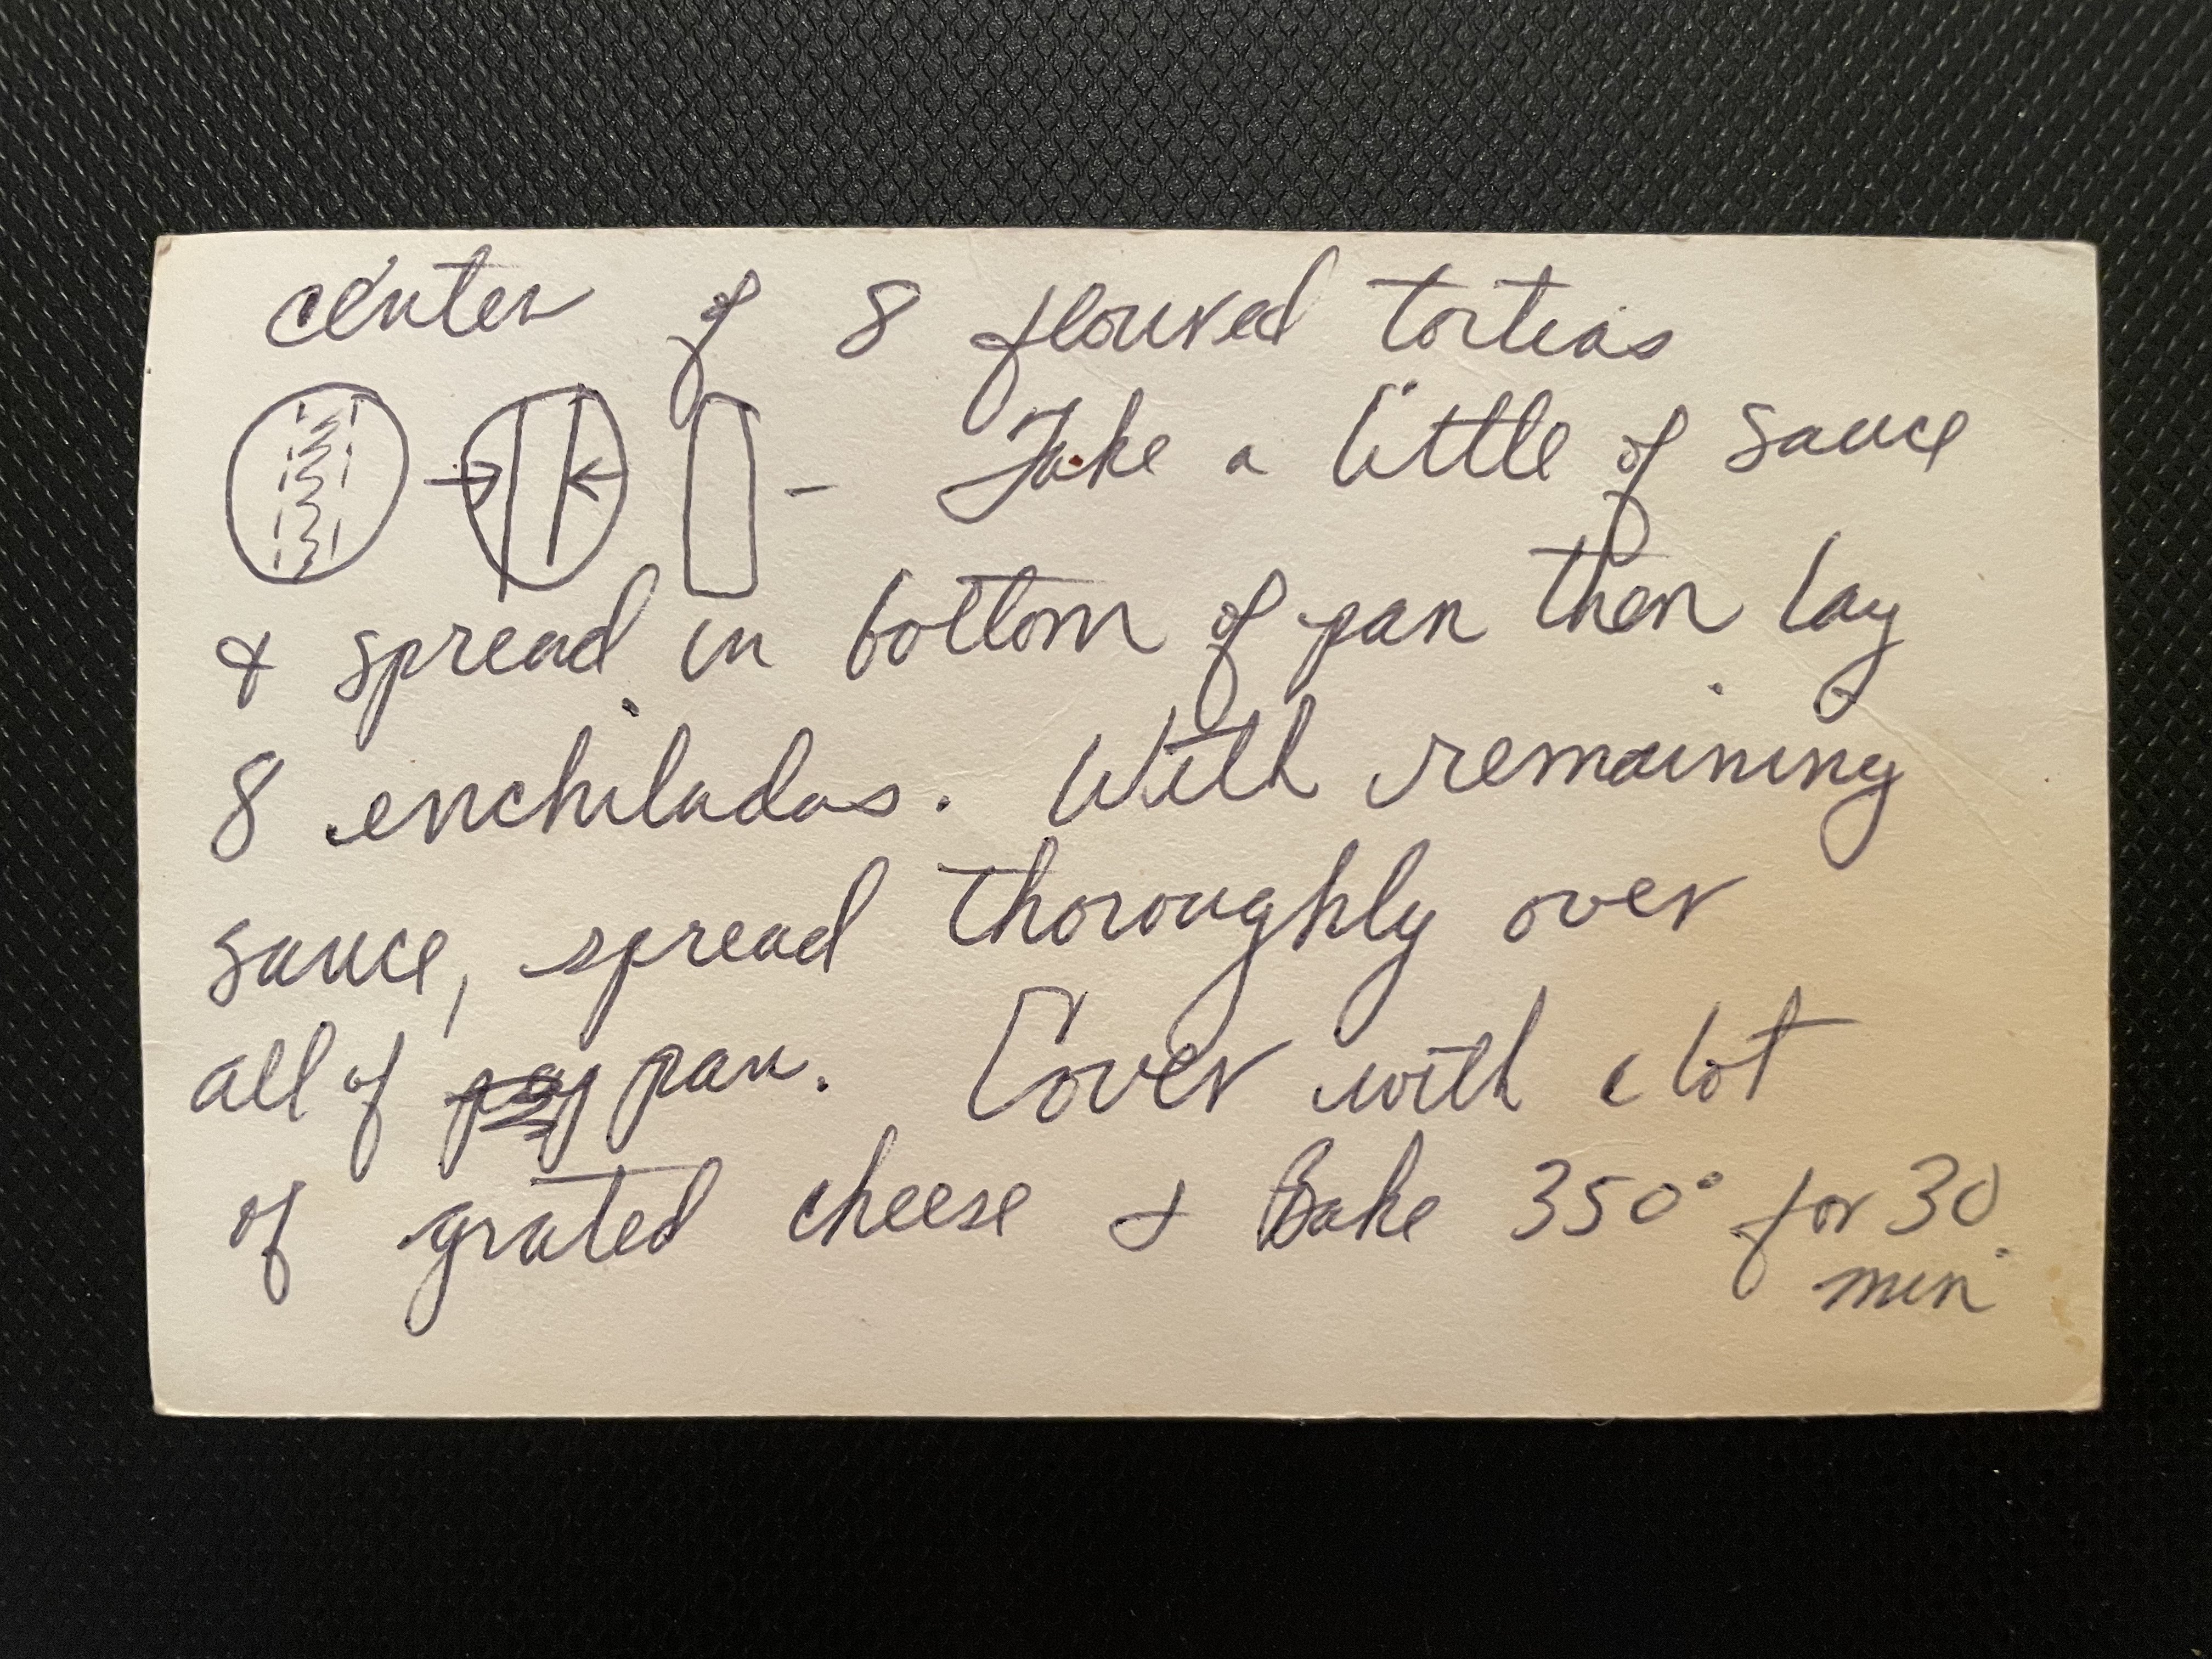 center of 8 floured tortias
- Take a little of sauce
& spread in bottom of pan then lay
8 enchiladas. With remaining
sauce, spread thoroughly over
all of pan. Cover with a lot
of grated cheese & Bake 350° for 30
min